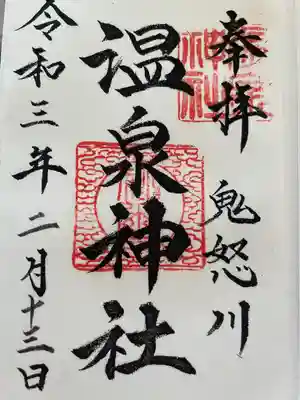 奉拝
鬼怒川
温泉神社
令和三年二月十三日